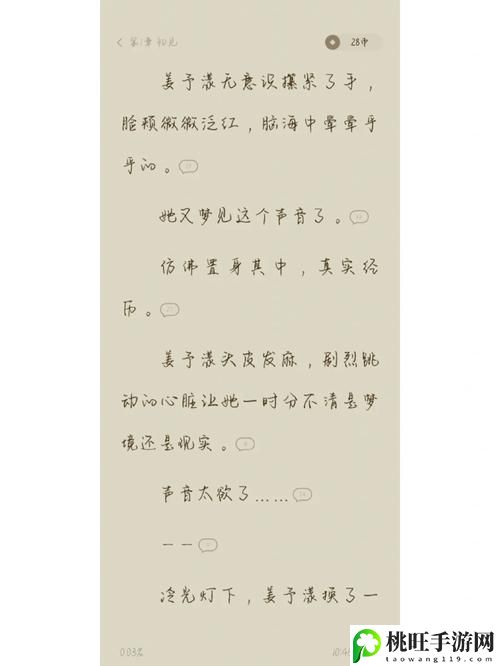 第1章 初见
28币
姜予漾无意识攥紧了手，
脸颊微微泛红，脑海中晕晕乎
乎的。
她又梦见这个声音了。
仿佛置身其中，真实经
历。
姜予漾头皮发麻，剧烈跳
动的心脏让她一时分不清是梦
境还是现实。
声音太欲了……
——
冷光灯下，姜予漾换了一
0.03%
桃旺手游网
taowang119.com